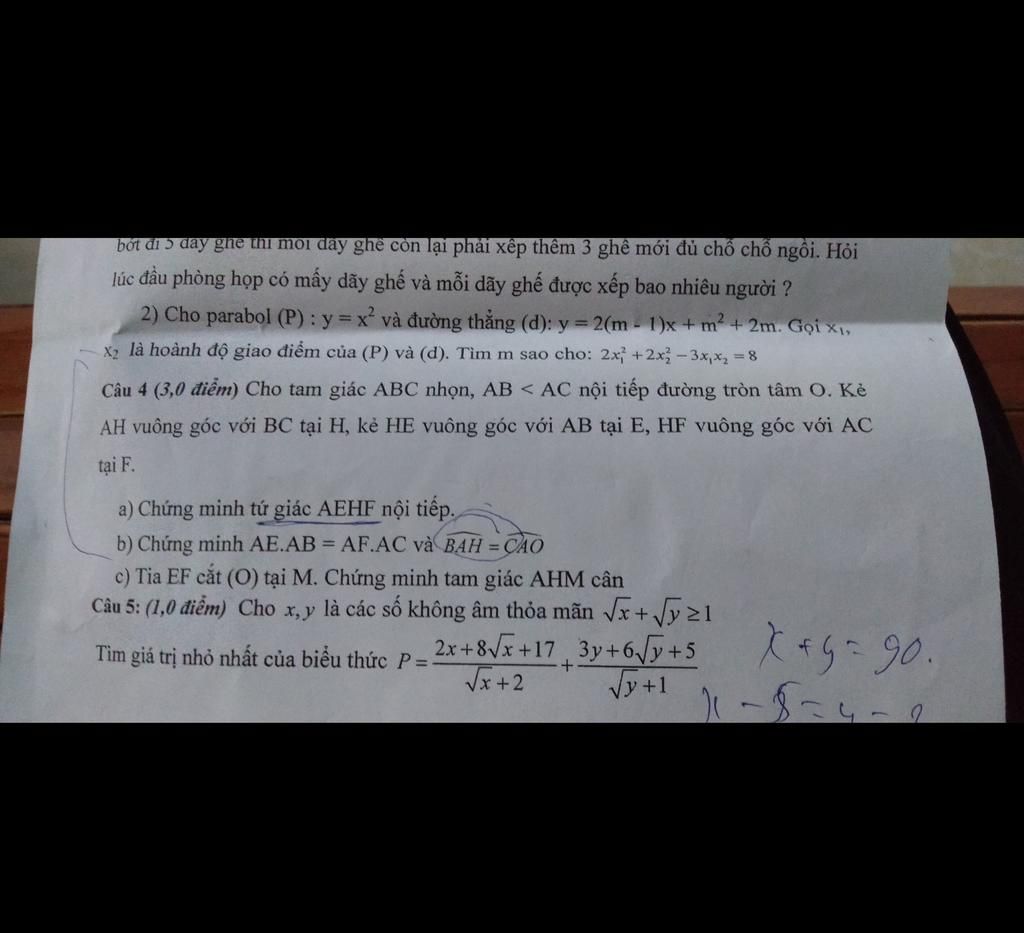 bớt đi 5 dãy ghế thì mỗi dãy ghế còn lại phải xếp thêm 3 ghế mới đủ chỗ chỗ ngồi. Hỏi
lúc đầu phòng họp có mấy dãy ghế và mỗi dãy ghế được xếp bao nhiêu người ?
2) Cho parabol (P) : y = x² và đường thẳng (d): y = 2(m - 1)x + m² + 2m. Gọi x₁,
x₂ là hoành độ giao điểm của (P) và (d). Tìm m sao cho: 2x₁² + 2x₂² − 3x₁x₂ = 8
Câu 4 (3,0 điểm) Cho tam giác ABC nhọn, AB < AC nội tiếp đường tròn tâm O. Kẻ
AH vuông góc với BC tại H, kẻ HE vuông góc với AB tại E, HF vuông góc với AC
tại F.
a) Chứng minh tứ giác AEHF nội tiếp.
b) Chứng minh AE.AB = AF.AC và BAH = CAO
c) Tia EF cắt (O) tại M. Chứng minh tam giác AHM cân
Câu 5: (1,0 điểm) Cho x, y là các số không âm thỏa mãn √x + √y ≥ 1
Tìm giá trị nhỏ nhất của biểu thức P = (2x + 8√x + 17)/(√x + 2) + (3y + 6√y + 5)/(√y + 1)
x + y = 90.